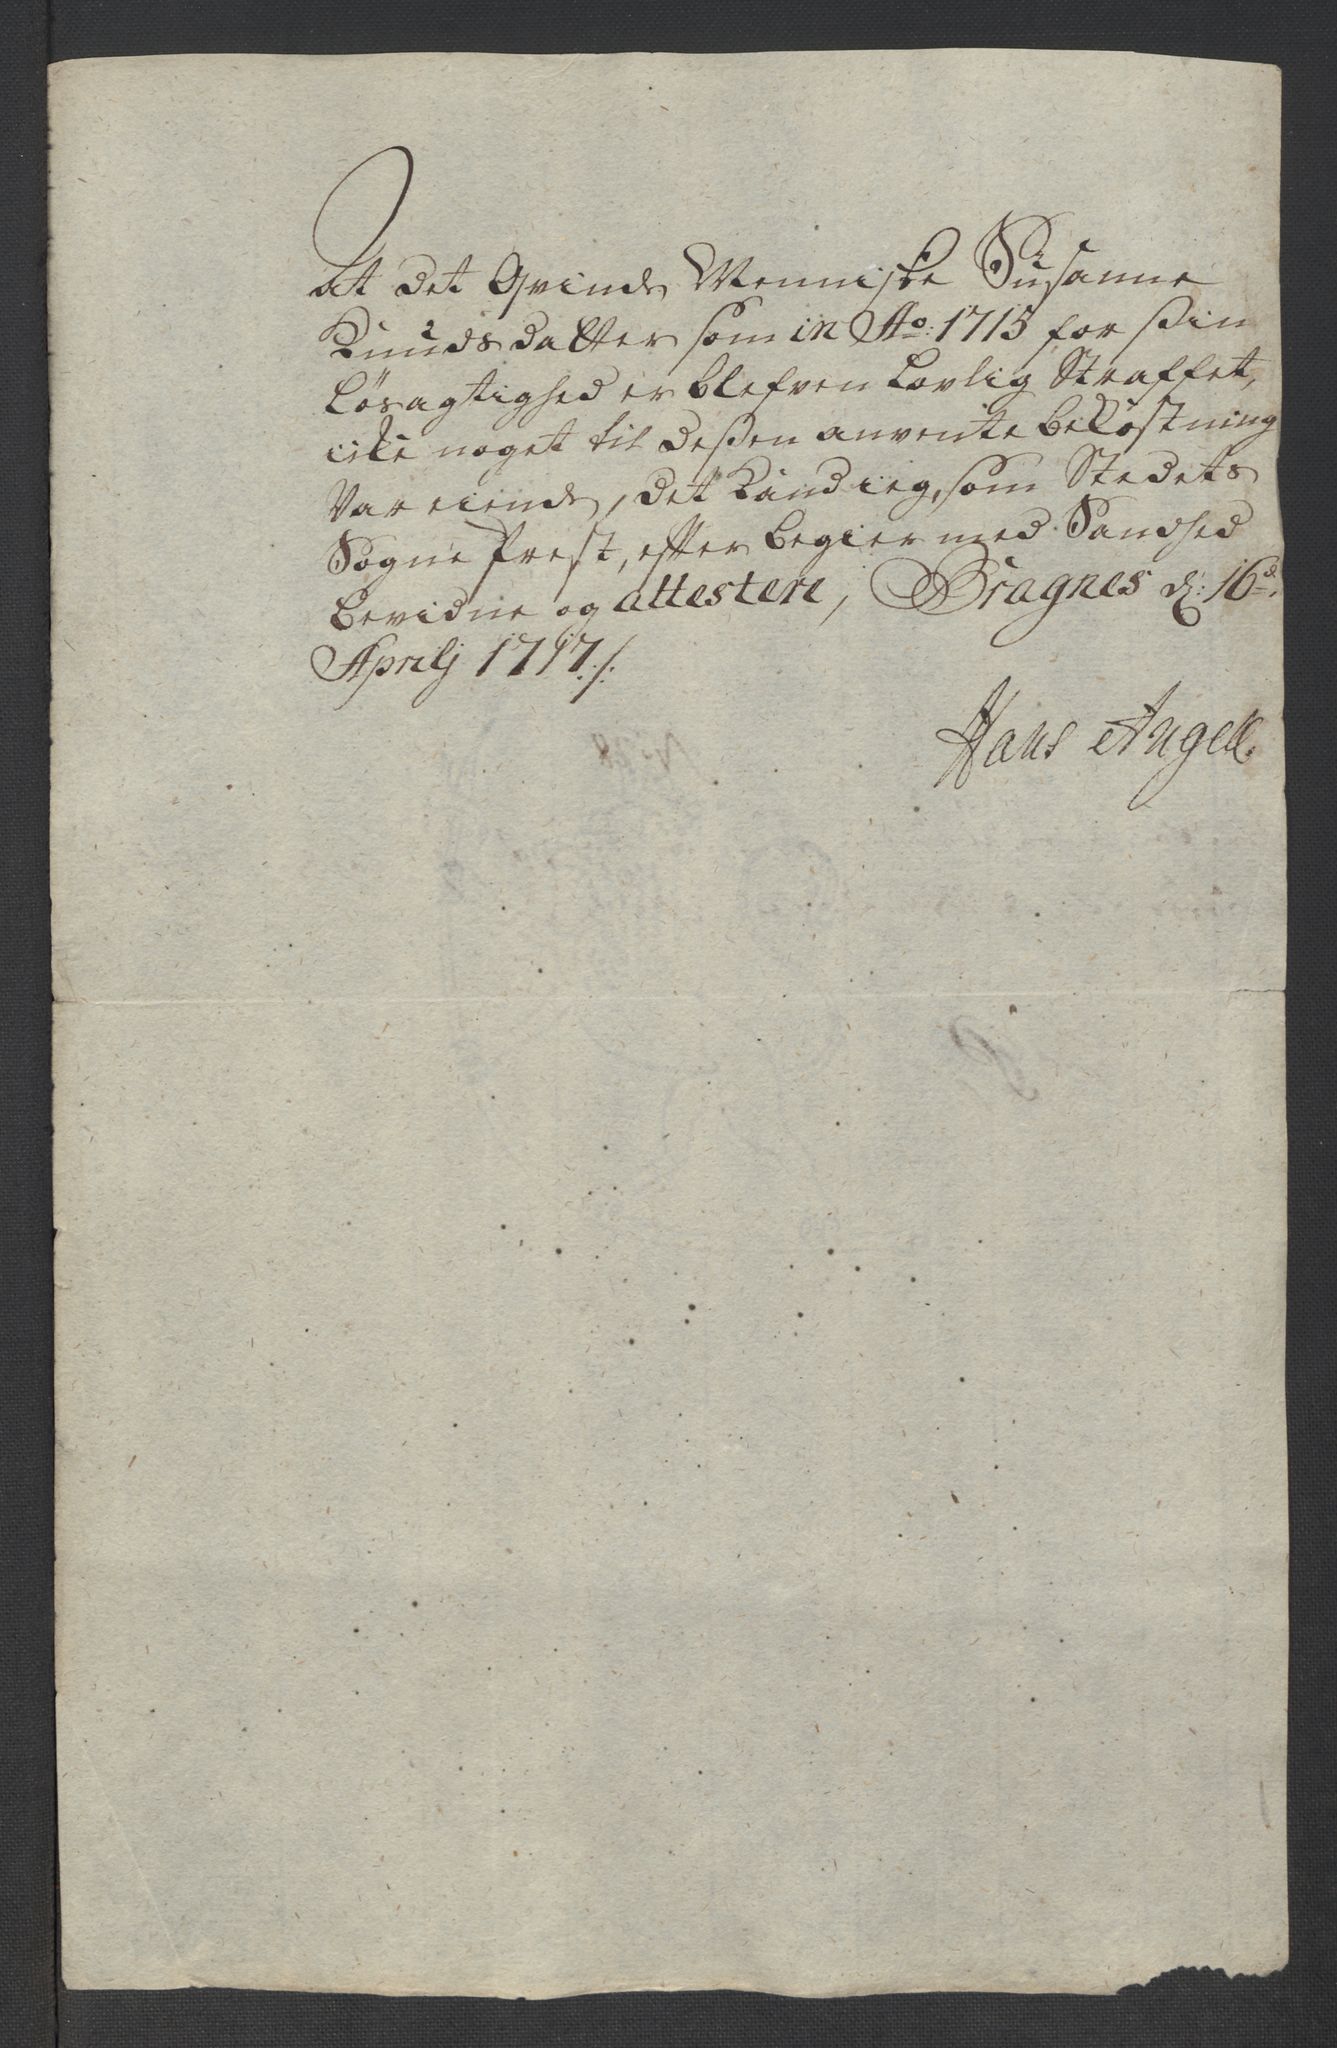 At det Qvinde Menniske Susanne
Knudsdatter som in Ao: 1715 for sin
Løsagtighed er blefven Lovlig Straffet,
icke noget til dessen anvente bekostning
var eiende, det kand ieg, som Stedets
Sogne Prest, efter begier med Sandhed
bevidne og attestere, Bragnes d: 16d.
Aprilj 1717./.
Hans Angell.